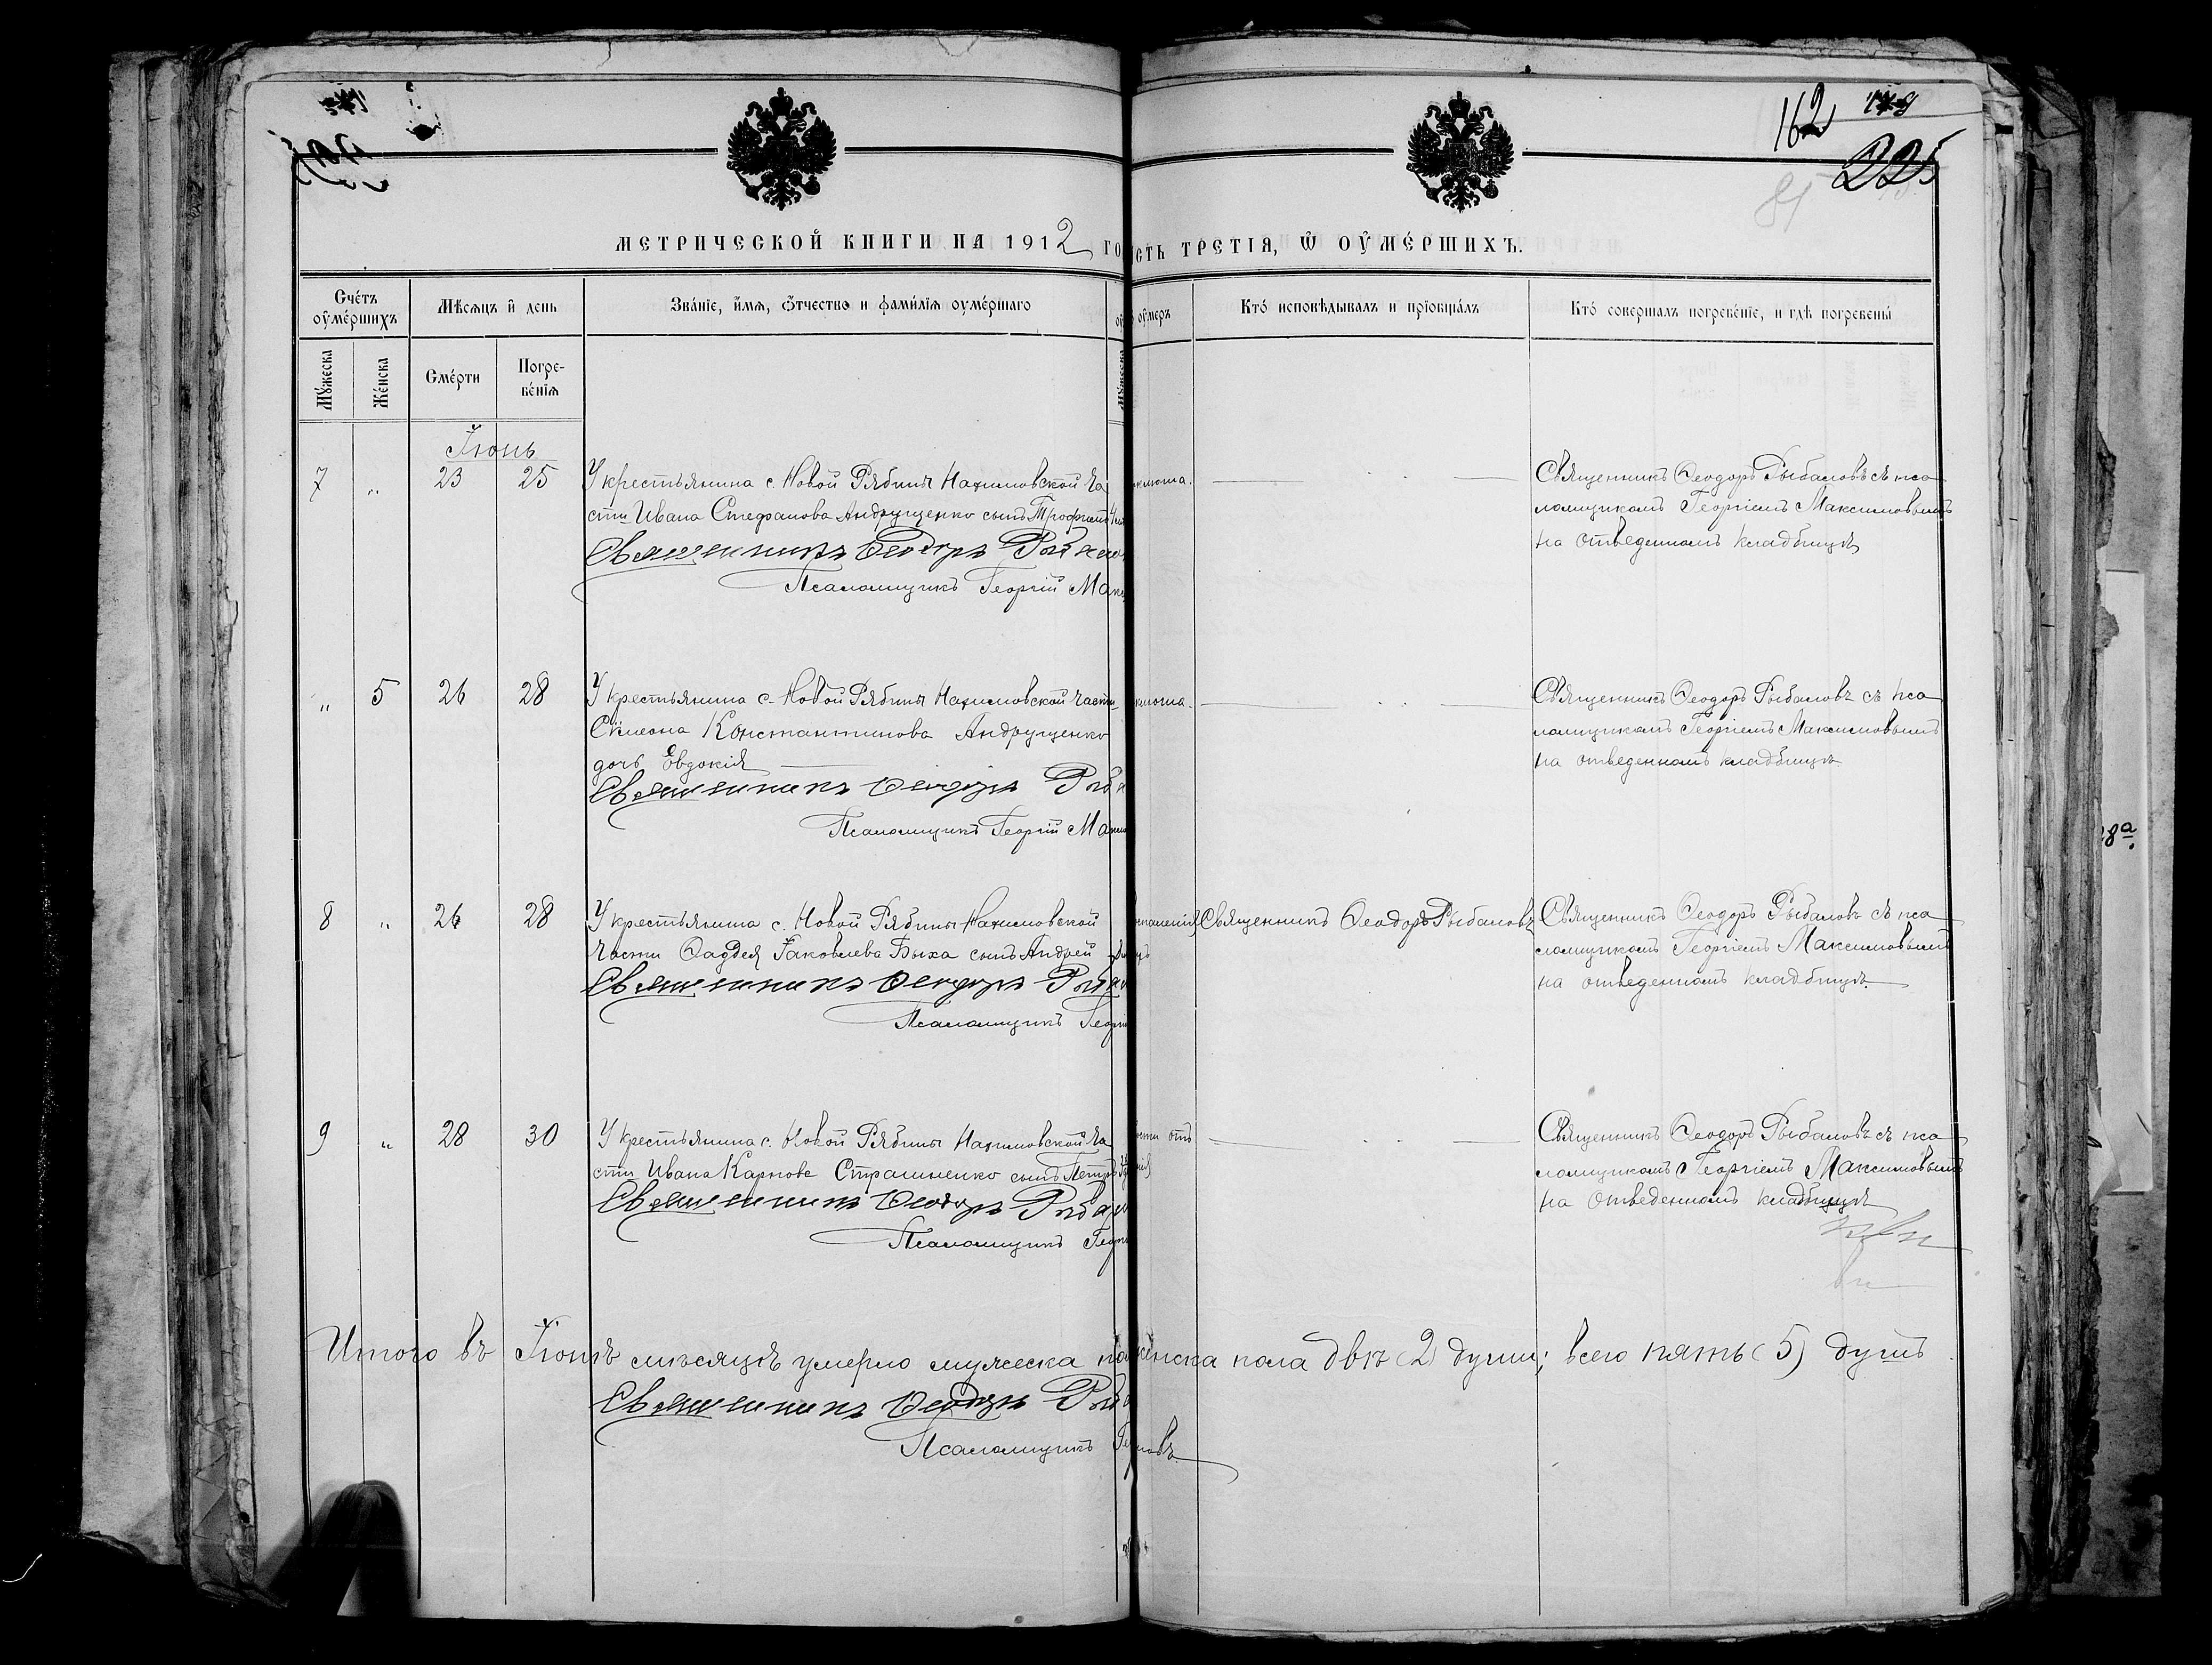 162
225
81
МЕТРИЧЕСКОЙ КНИГИ НА 1912 ГО
СТЬ ТРЕТІЯ, Ѿ ОУМЕРШИХЪ.
Счетъ оумершихъ
Мѣсяцъ и день
Званіе, имя, ѿтчество и фамилія оумершаго
оумеръ
Кто исповѣдывалъ и пріобщалъ
Кто совершалъ погребеніе, и гдѣ погребены
Мужеска
Женска
Смерти
Погребенія
Мужеска
Іюнь
7 " 23 25 У крестьянина с. Новой Рябины Нахимовской ча
сти Ивана Стефанова Андрущенко сынъ Трофимъ
Священникъ Ѳеодоръ
Псаломщикъ Георгій
Священникъ Ѳеодоръ Рыбаловъ съ пса
ломщикомъ Георгіемъ Максимовымъ
на отведенномъ кладбищѣ
" 5 26 28 У крестьянина с. Новой Рябины Нахимовской части
Сѵмеона Константинова Андрущенко
дочь Евдокія
Священникъ Ѳеодоръ
Псаломщикъ Георгій
Священникъ Ѳеодоръ Рыбаловъ съ пса
ломщикомъ Георгіемъ Максимовымъ
на отведенномъ кладбищѣ.
8 " 26 28 У крестьянина с. Новой Рябины Нахимовской
части Ѳаддея Іаковлева Быха сынъ Андрей
Священникъ Ѳеодоръ
Псаломщикъ
Священникъ Ѳеодоръ Рыбаловъ
Священникъ Ѳеодоръ Рыбаловъ съ пса
ломщикомъ Георгіемъ Максимовымъ
на отведенномъ кладбищѣ.
9 " 28 30 У крестьянина с. Новой Рябины Нахимовской ча
сти Ивана Карпова Страшненко сынъ Петръ
Священникъ Ѳеодоръ
Псаломщикъ
отъ
Священникъ Ѳеодоръ Рыбаловъ съ пса
ломщикомъ Георгіемъ Максимовымъ
на отведенномъ кладбищѣ
Итого въ Іюнѣ мѣсяцѣ умерло мужеска по
женска пола двѣ (2) души; всего пять (5) душъ
Священникъ Ѳеодоръ
Псаломщикъ
28а.